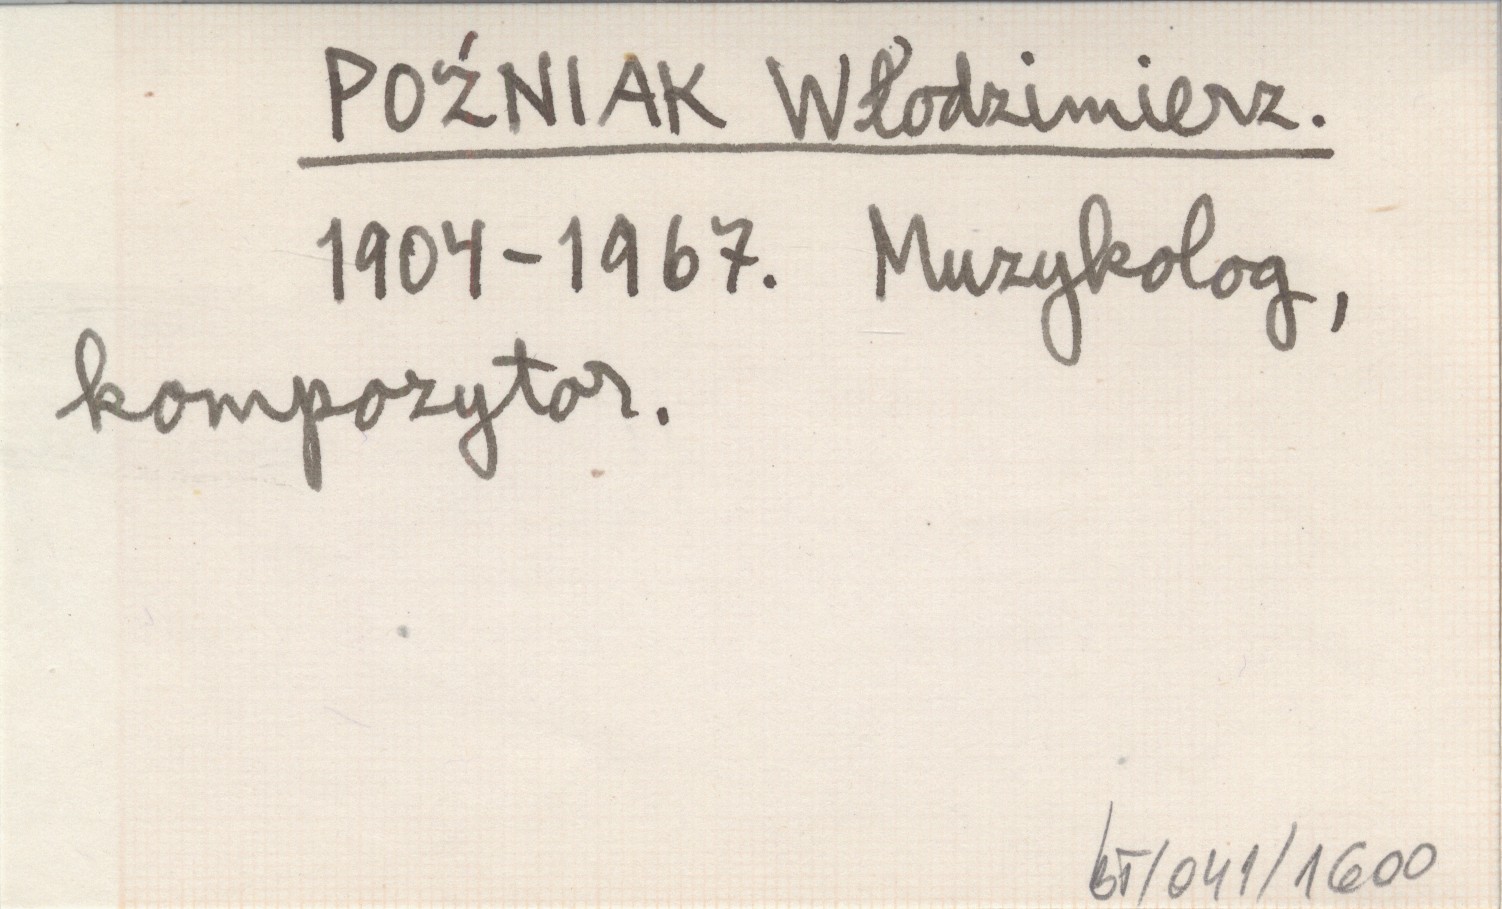 POŹNIAK Włodzimierz.
1904-1967. Muzykolog,
kompozytor.
bt/041/1600